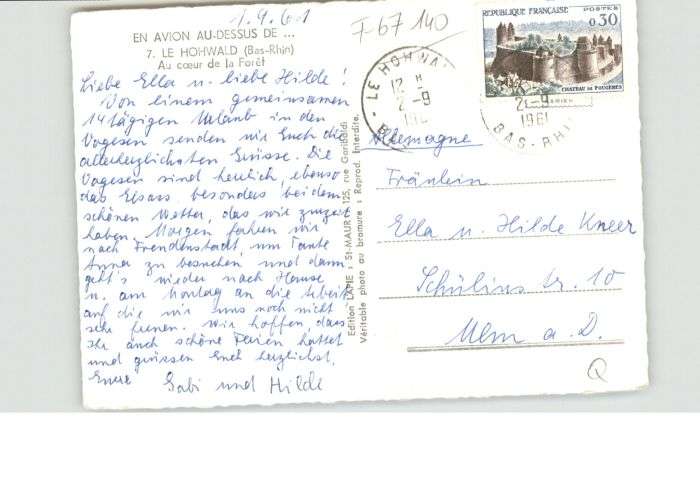 1.9.61
F-67 140
EN AVION AU-DESSUS DE ...
7. LE HOHWALD (Bas-Rhin)
Au cœur de la Forêt
Liebe Ella u. liebe Hilde!
Von einem gemeinsamen
14tägigen Urlaub in den
Vogesen senden wir Euch die
allerherzlichsten Grüsse. Die
Vogesen sind herrlich, ebenso
das Elsass besonders bei dem
schönen Wetter, das wir zurzeit
haben. Morgen fahren wir
nach Freudenstadt, um Tante
Anna zu besuchen und dann
geht's wieder nach Hause
u. am Montag an die Arbeit
auf die wir uns noch nicht
sehr freuen. Wir hoffen, dass
Ihr auch schöne Ferien hattet
und grüssen Euch herzlichst,
Eure Gabi und Hilde
Edition LAPIE : St-MAUR - 125, rue Garibaldi
Véritable photo au bromure : Reprod. Interdite.
REPUBLIQUE FRANÇAISE POSTES
0,30
CHATEAU DE FOUGERES
LE HOHWALD
12 H
2-9
2-9
1961
BAS-RHIN
Allemagne
Fräulein
Ella u. Hilde Kneer
Schülinstr. 10
Ulm a. D.
Q